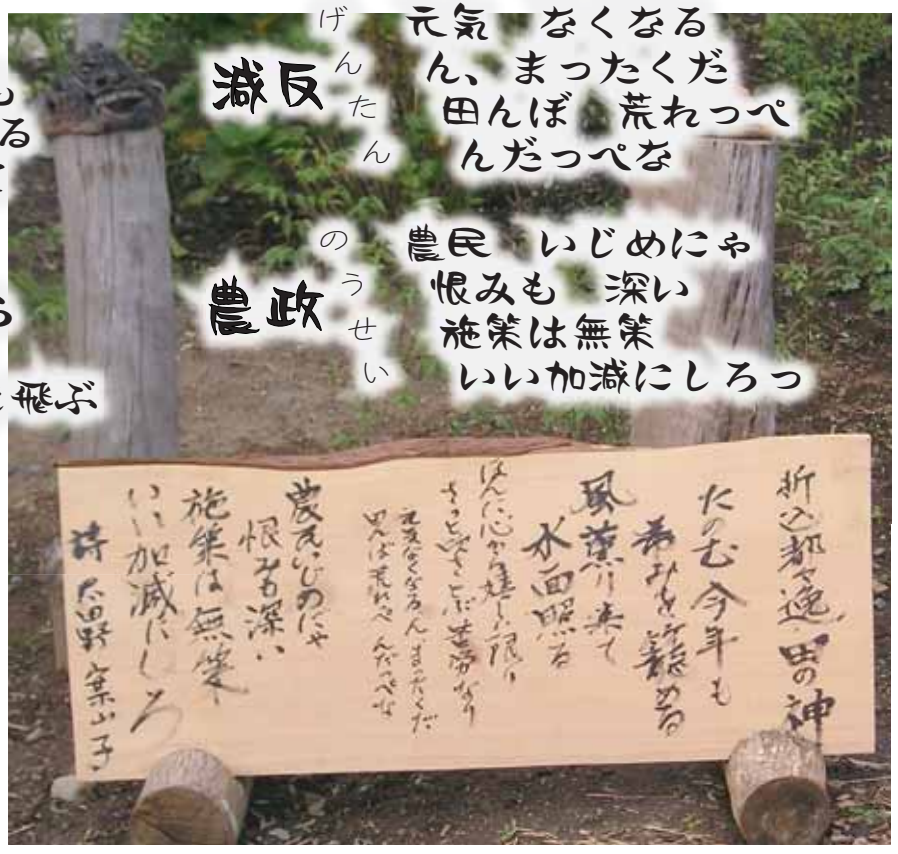 減反
げんたん
元気 なくなる
ん、まったくだ
田んぼ 荒れっぺ
んだっぺな
農政
のうせい
農民 いじめにゃ
恨みも 深い
施策は無策
いい加減にしろっ
る
飛ぶ
折込都々逸 田の神
たのむ今年も
希みを籠める
風薫り来て
水面照る
ほんに心から嬉しい限り
さっと空さとぶ苦労なり
元気なくなるんまったくだ
田んぼ荒れっぺ んだっぺな
農民いじめにゃ
恨みも深い
施策は無策
いい加減にしろ
詩 太田野 案山子